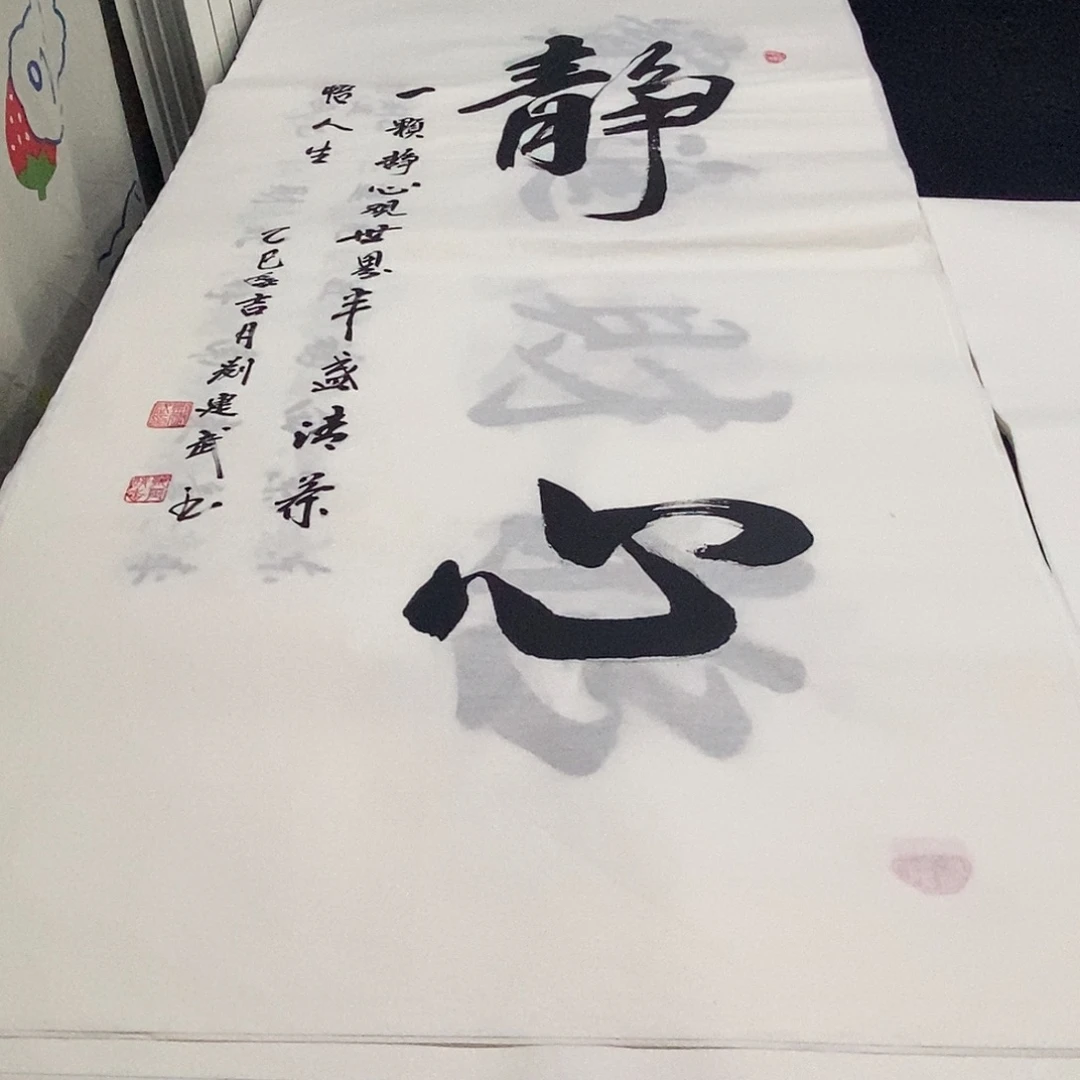 静心
一颗静心观世界半盏清茶
怡人生
乙巳年吉月刘建武书